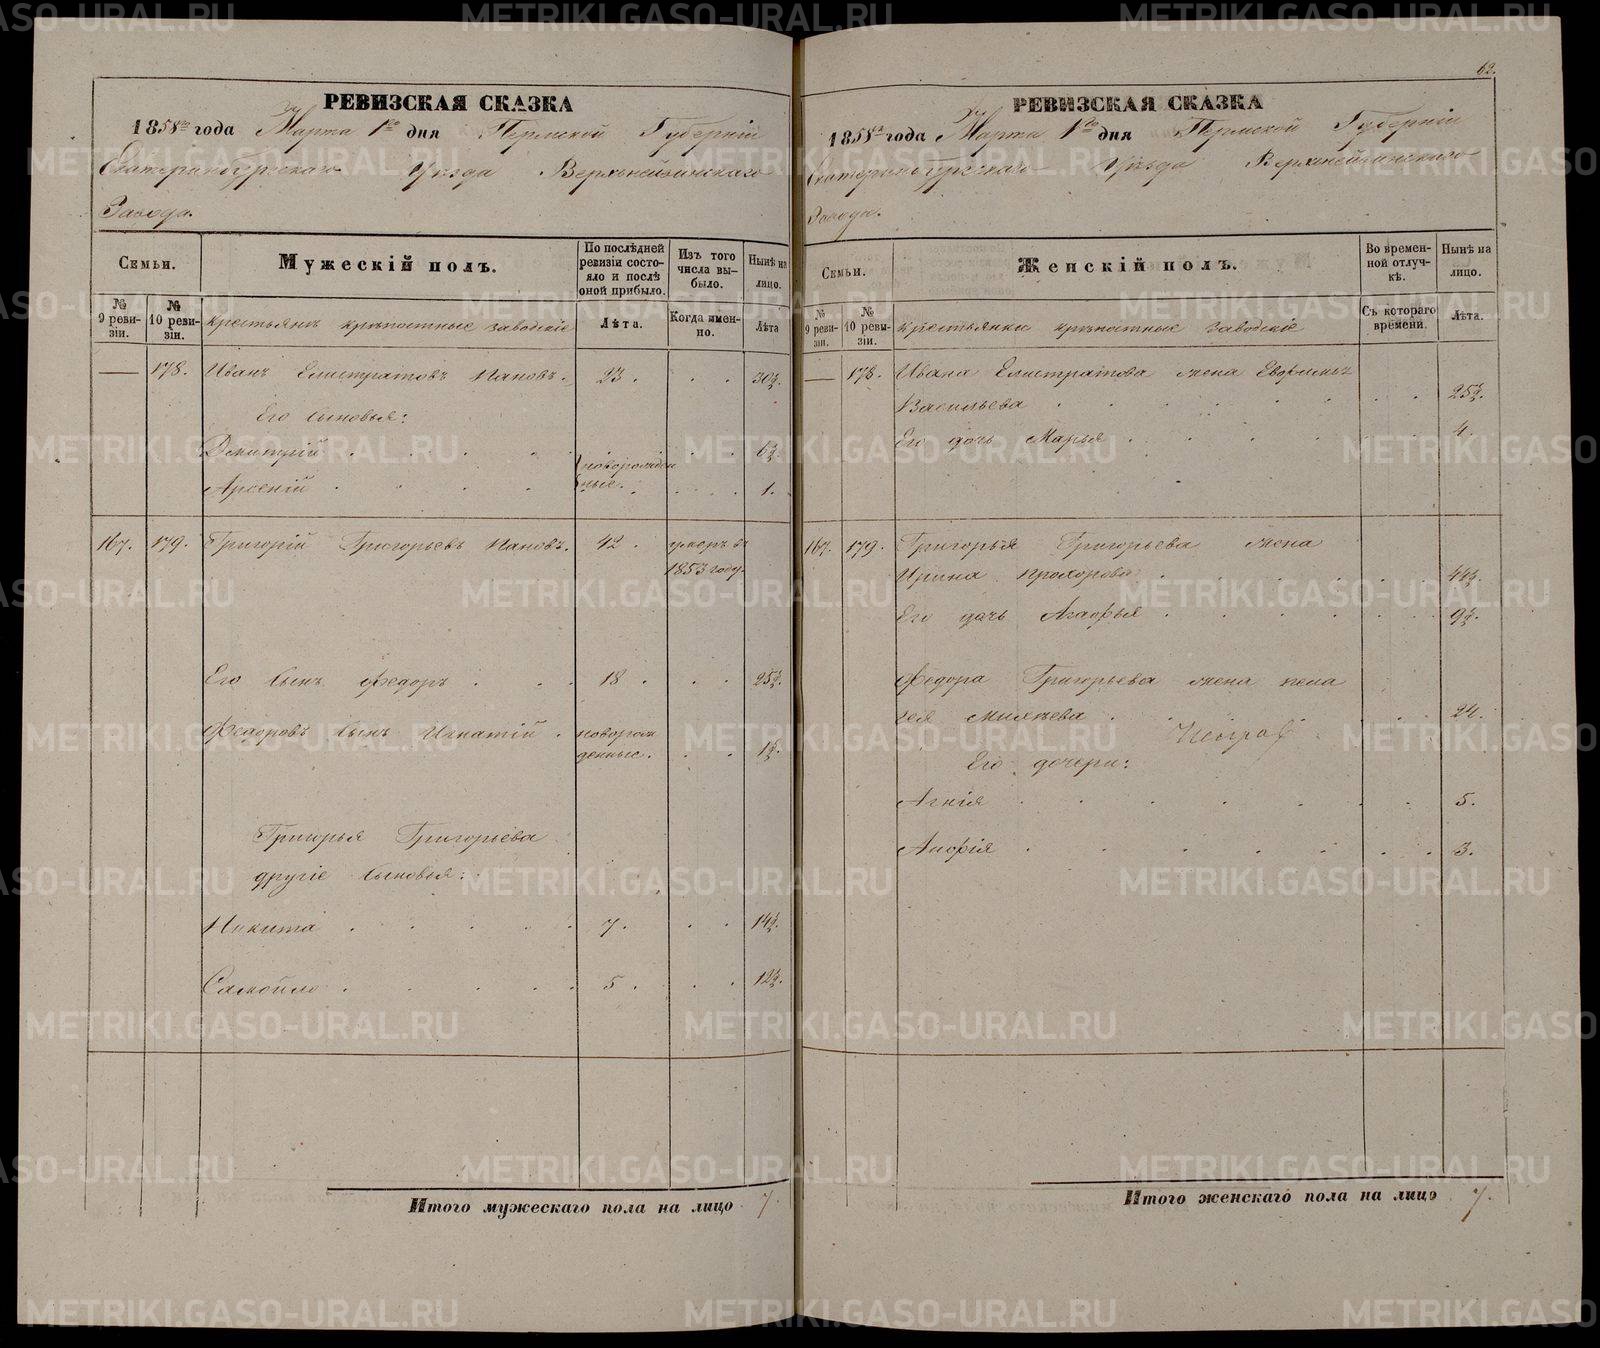 62.
РЕВИЗСКАЯ СКАЗКА
1858го года Марта 1го дня Пермской Губерніи
Екатеринбургскаго Уѣзда Верхнейвинскаго
Завода.
Семьи.
Мужескій полъ.
По послѣдней ревизіи состояло и послѣ оной прибыло.
Изъ того числа выбыло.
Нынѣ на лицо.
№ 9 ревизіи.
№ 10 ревизіи.
Крестьянъ крѣпостные заводскіе
Лѣта.
Когда именно.
Лѣта
— 178. Иванъ Елистратовъ Пановъ. 23 . . . 30½.
Его сыновья:
Дмитрій . . . . 6½.
Арсеній . . . . новорожденные. . . . 1.
167. 179. Григорій Григорьевъ Пановъ. 42. умеръ въ 1853 году.
Его сынъ Федоръ . . . 18 . . . 25½.
Федоровъ сынъ Игнатій . новорожденные. . . 1½.
Григорья Григорьева
другіе сыновья:
Никита . . . . . 7. . . 14½.
Самойло . . . . . 5 . . . 12½.
Итого мужескаго пола на лицо 7.
РЕВИЗСКАЯ СКАЗКА
1858го года Марта 1го дня Пермской Губерніи
Екатеринбургскаго Уѣзда Верхнейвинскаго
Завода.
Семьи.
Женскій полъ.
Во временной отлучкѣ.
Нынѣ на лицо.
№ 9 ревизіи.
№ 10 ревизіи.
Крестьянки крѣпостные заводскіе
Съ котораго времени.
Лѣта.
— 178. Ивана Елистратова жена
Васильева . . . . . . . 25½.
Его дочь Марья . . . . . 4.
167. 179. Григорья Григорьева жена
Ирина Прохорова . . . . . 44½.
Его дочь Агафья . . . . . 9½.
Федора Григорьева жена Пела
гея . . . . 24.
Его дочери:
Агнія . . . . . . . 5.
Анфія . . . . . . . 3.
Итого женскаго пола на лицо 7.
METRIKI.GASO-URAL.RU